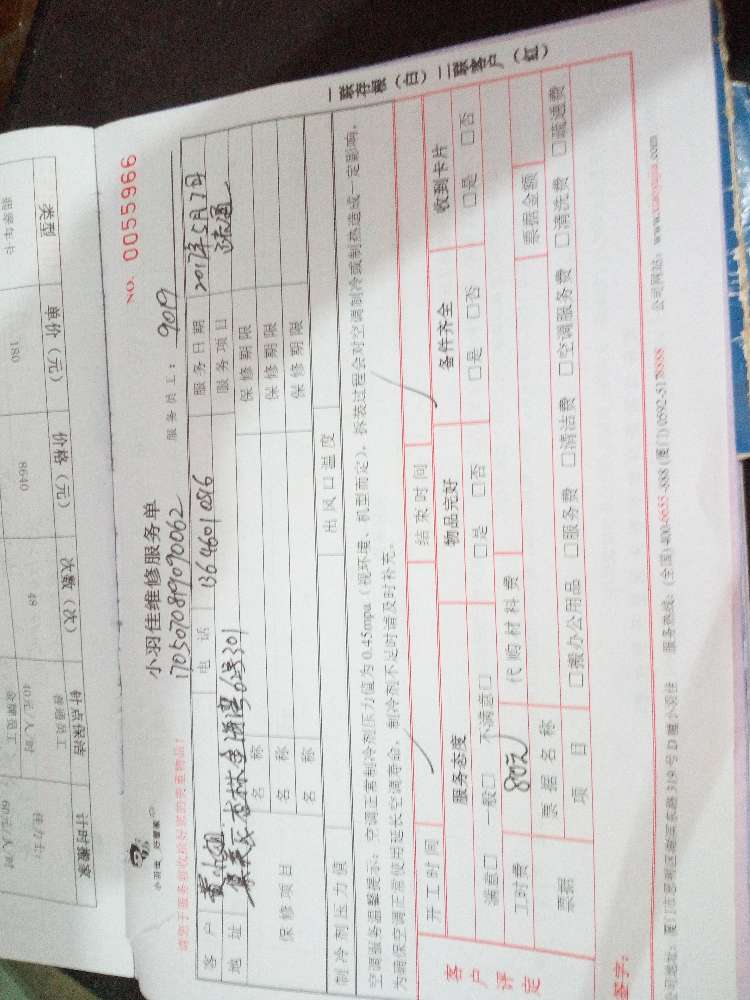 类型
单价（元）
价格（元）
次数（次）
180
8640
48
钟点保洁
普通员工
40元/人/时
金牌员工
60元/人/时
计时搬家
小羽佳维修服务单
NO. 0055966
170507081909090062
服务员工： 9019
小羽佳 好管家
请您于服务前收拾好您的贵重物品！
客户 黄小姐 电话 13646010816 服务日期 2017年5月7日
地址 集美区杏林金海湾62号301 服务项目 疏通
保修项目 名称 保修期限
名称 保修期限
名称 保修期限
制冷剂压力值 出风口温度
空调服务温馨提示：空调正常制冷剂压力值为0.45mpa（视环境、机型而定），拆装过程会对空调制冷或制热造成一定影响，
为确保空调正常使用延长空调寿命，制冷剂不足时请及时补充。
客户评定
开工时间 结束时间
服务态度 物品完好 备件齐全 收到卡片
满意□ 一般□ 不满意□ □是 □否 □是 □否 □是 □否
工时费 80元 代购材料费
票据 票据名称 票据金额
项目 □搬办公用品 □服务费 □清洁费 □空调服务费 □清洗费 □疏通费
签字：
服务热线：(全国) 400-0655-888 (厦门) 0592-5178888
公司网站：www.xiaoyujia.com
一联存根（白）二联客户（红）